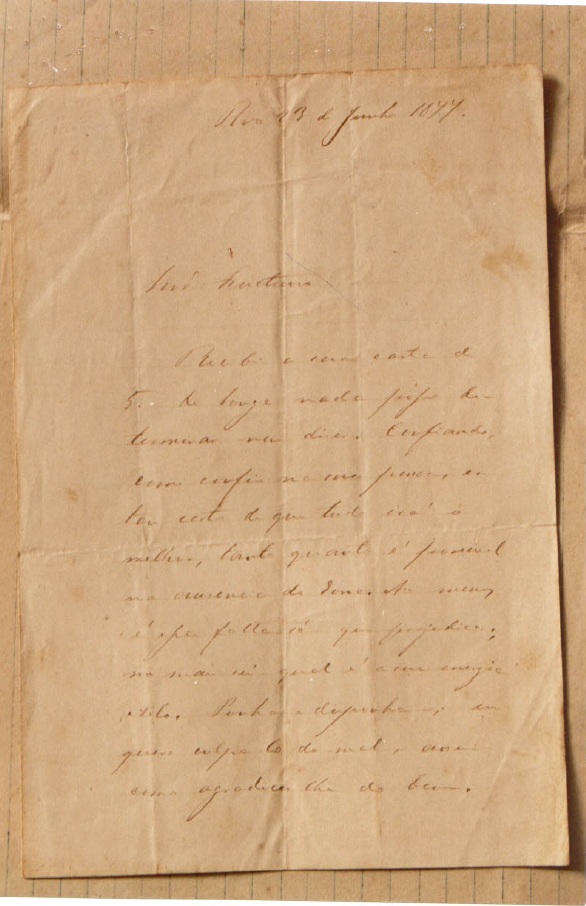 Rio 23 de Junho 1877.
Recebi a sua carta de
5. De longe nada posso de-
terminar nem dizer. Confiando,
como confio na sua pessoa, es-
tou certo de que tudo irá o
melhor, tanto quanto é possivel
na ausencia do dono. Ao menos
é essa falta só que prejudica;
no mais sei qual é a sua energia
e zelo. Ponha e disponha
quero culpal-o do mal, assim
como agradecer-lhe do bem.